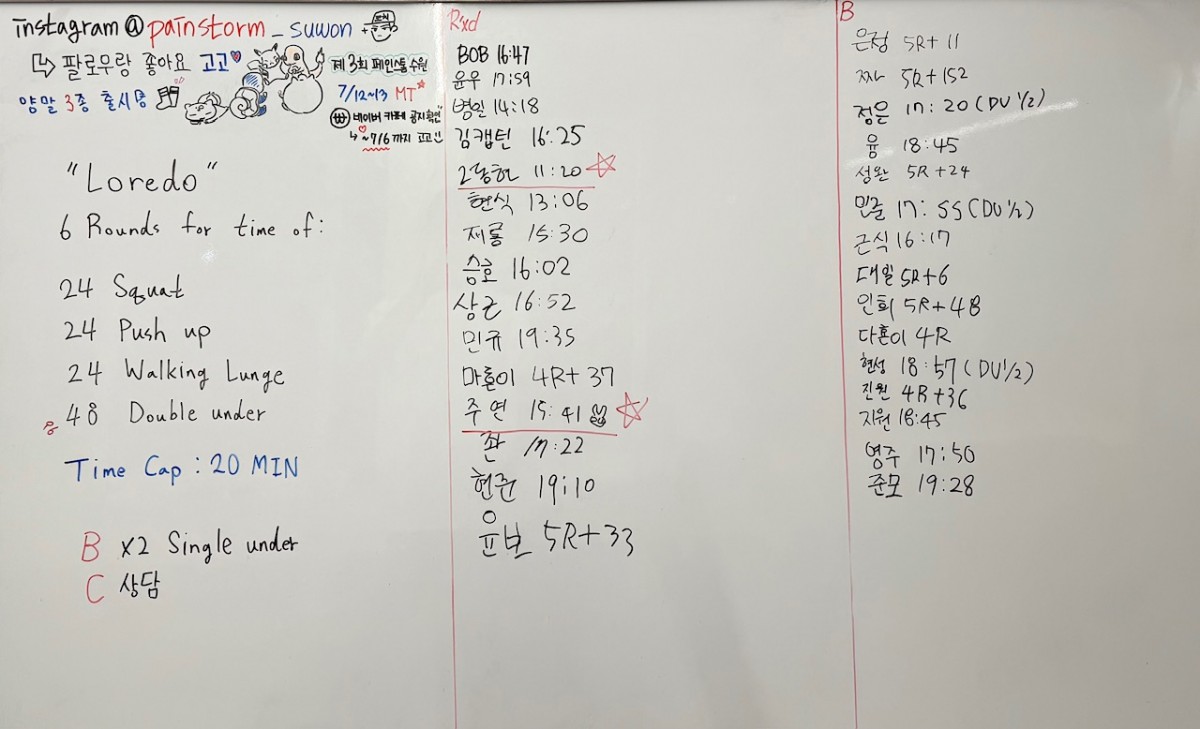 instagram@painstorm_suwon
↳ 팔로우랑 좋아요 고고♥
양말 3종 출시중
제 3회 페인스톰 수원
7/12~13 MT
네이버 카페 공지확인
↳ ~7/6 까지 고고!!
"Loredo"
6 Rounds for time of:
24 Squat
24 Push up
24 Walking Lunge
48 Double under
Time Cap : 20 MIN
B x2 Single under
C 상담
Rxd
BOB 16:47
윤우 17:59
병일 14:18
김캡틴 16:25
2동혀 11:20
현식 13:06
재룡 15:30
승호 16:02
상근 16:52
민규 19:35
마흔이 4R+37
주연 15:41
좐 17:22
현준 19:10
윤보 5R+33
B
은정 5R+11
찌나 5R+152
정은 17:20 (DU 1/2)
융 18:45
성완 5R+24
민준 17:55 (DU 1/2)
근식 16:17
대일 5R+6
인희 5R+48
다흔이 4R
현성 18:57 (DU 1/2)
진원 4R+36
지원 18:45
영주 17:50
준모 19:28